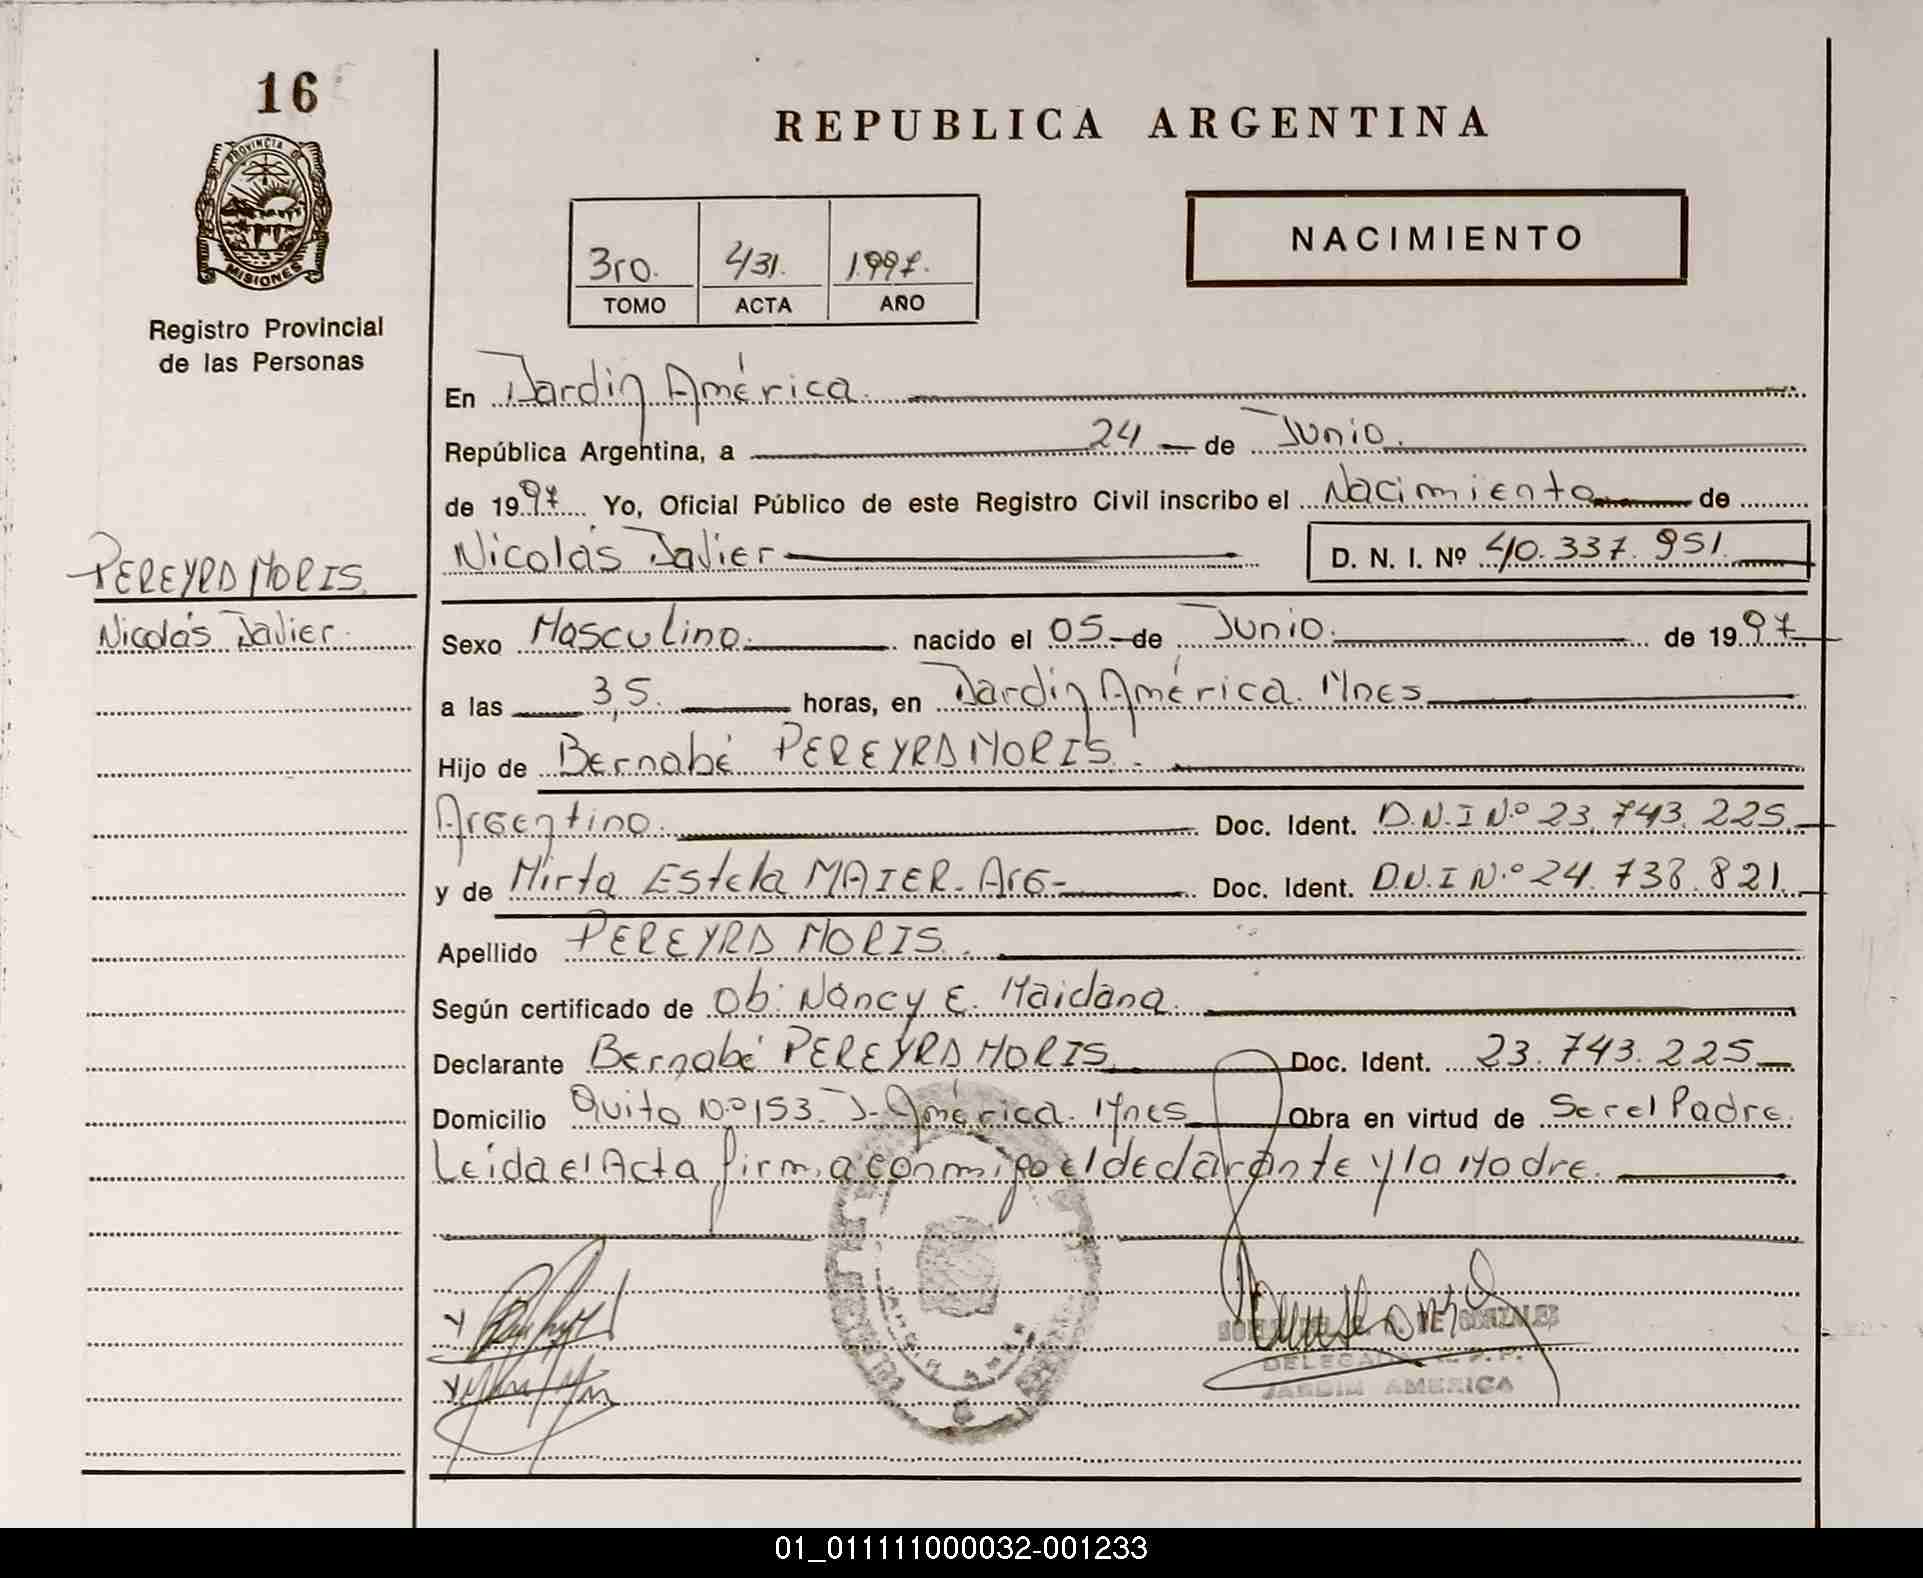 16
PROVINCIA DE
MISIONES
Registro Provincial
de las Personas
REPUBLICA ARGENTINA
3ro. 431. 1.997.
TOMO ACTA AÑO
NACIMIENTO
En Jardín América.
República Argentina, a 24 de Junio.
de 1997 Yo, Oficial Público de este Registro Civil inscribo el Nacimiento de
PEREYRA MORIS
Nicolás Javier
Nicolás Javier D. N. I. Nº 40.337.951.
Sexo Masculino. nacido el 05 de Junio. de 1997
a las 3,5. horas, en Jardín América. Mnes
Hijo de Bernabé PEREYRA MORIS.
Argentino. Doc. Ident. D.N.I N.º 23.743.225.
y de Mirta Estela MAIER. Arg- Doc. Ident. D.N.I N.º 24.738.821.
Apellido PEREYRA MORIS.
Según certificado de Ob. Nancy E. Maidana.
Declarante Bernabé PEREYRA MORIS. Doc. Ident. 23.743.225
Domicilio Quito N.º 153. J. América. Mnes Obra en virtud de Ser el Padre.
Leída el Acta firma conmigo el declarante y la Madre.
DELEGADA R. P. P.
JARDIN AMERICA
01_011111000032-001233